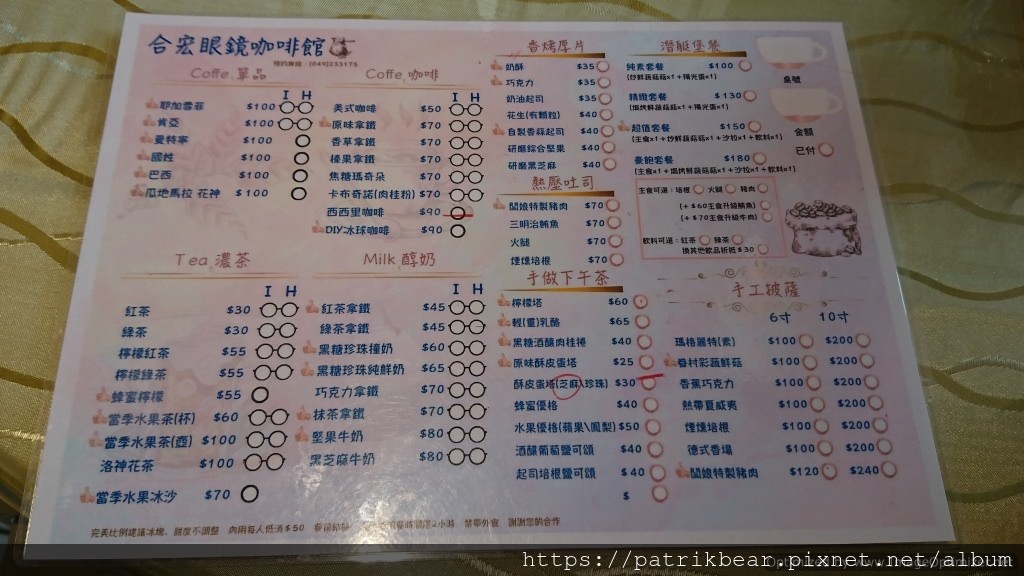 合宏眼鏡咖啡館
預約專線:(049)233175
Coffe 單品
I H
耶加雪菲 $100
肯亞 $100
曼特寧 $100
國姓 $100
巴西 $100
瓜地馬拉 花神 $100
Coffe 咖啡
I H
美式咖啡 $50
原味拿鐵 $70
香草拿鐵 $70
榛果拿鐵 $70
焦糖瑪奇朵 $70
卡布奇諾(肉桂粉) $70
西西里咖啡 $90
DIY冰球咖啡 $90
Tea 濃茶
I H
紅茶 $30
綠茶 $30
檸檬紅茶 $55
檸檬綠茶 $55
蜂蜜檸檬 $55
當季水果茶(杯) $60
當季水果茶(壺) $100
洛神花茶 $100
當季水果冰沙 $70
Milk 醇奶
I H
紅茶拿鐵 $45
綠茶拿鐵 $45
黑糖珍珠撞奶 $60
黑糖珍珠純鮮奶 $65
巧克力拿鐵 $70
抹茶拿鐵 $70
堅果牛奶 $80
黑芝麻牛奶 $80
香烤厚片
奶酥 $35
巧克力 $35
奶油起司 $35
花生(有顆粒) $40
自製香蒜起司 $40
研磨綜合堅果 $40
研磨黑芝麻 $40
熱壓吐司
闆娘特製豬肉 $70
三明治鮪魚 $70
火腿 $70
煙燻培根 $70
手做下午茶
檸檬塔 $60
輕(重)乳酪 $65
黑糖酒釀肉桂捲 $40
原味酥皮蛋塔 $25
酥皮蛋塔(芝麻\珍珠) $30
蜂蜜優格 $40
水果優格(蘋果\鳳梨) $50
酒釀葡萄鹽可頌 $40
起司培根鹽可頌 $40
$
潛艇堡餐
純素套餐 $100
(炒鮮蔬菇菇x1+陽光蛋x1)
精緻套餐 $130
(焗烤鮮蔬菇菇x1+陽光蛋x1)
超值套餐 $150
(主食x1+炒鮮蔬菇菇x1+沙拉x1+飲料x1)
豪飽套餐 $180
(主食x1+焗烤鮮蔬菇菇x1+沙拉x1+飲料x1)
主食可選:培根 火腿 豬肉
(+$60主食升級鯖魚)
(+$70主食升級牛肉)
飲料可選:紅茶 綠茶
換其他飲品折抵$30
桌號
金額
已付
手工披薩
6寸 10寸
瑪格麗特(素) $100 $200
眷村彩蔬鮮菇 $100 $200
香蕉巧克力 $100 $200
熱帶夏威夷 $100 $200
煙燻培根 $100 $200
德式香腸 $100 $200
闆娘特製豬肉 $120 $240
完美比例建議冰塊、甜度不調整 內用每人低消$50 禁帶外食 謝謝您的合作
https://patrikbear.pixnet.net/album